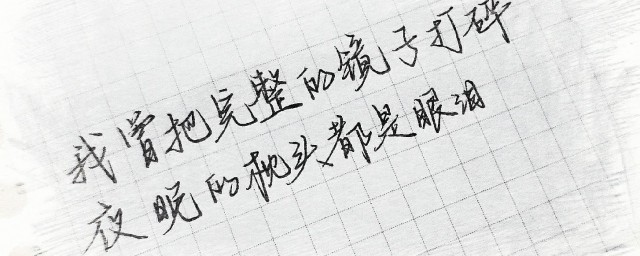 我曾把完整的镜子打碎
夜晚的枕头都是眼泪